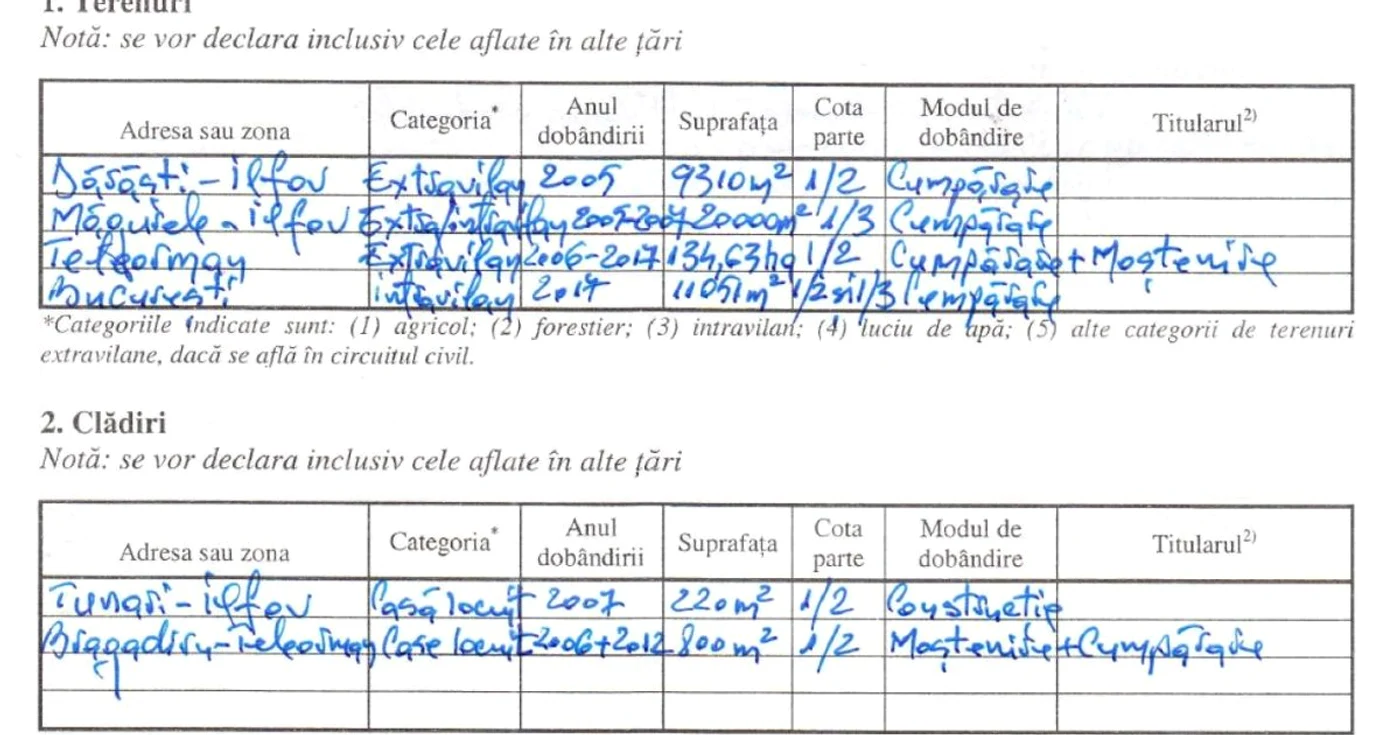 1. Terenuri
Notă: se vor declara inclusiv cele aflate în alte țări
Adresa sau zona Categoria* Anul dobândirii Suprafața Cota parte Modul de dobândire Titularul2)
Dărăști-ilfov Extravilan 2005 9310m² 1/2 Cumpărare
Măgurele-ilfov Extra/intravilan 2005-2007 20000m² 1/3 Cumpărare
Teleorman Extravilan 2006-2017 134,63ha 1/2 Cumpărare+Moștenire
București intravilan 2017 11051m² 1/2 si 1/3 Cumpărare
*Categoriile indicate sunt: (1) agricol; (2) forestier; (3) intravilan; (4) luciu de apă; (5) alte categorii de terenuri
extravilane, dacă se află în circuitul civil.
2. Clădiri
Notă: se vor declara inclusiv cele aflate în alte țări
Adresa sau zona Categoria* Anul dobândirii Suprafața Cota parte Modul de dobândire Titularul2)
Tunari-ilfov Casă locuit 2007 220m² 1/2 Constructie
Bragadiru-Teleorman Case locuit 2006+2012 800m² 1/2 Moștenire+Cumpărare